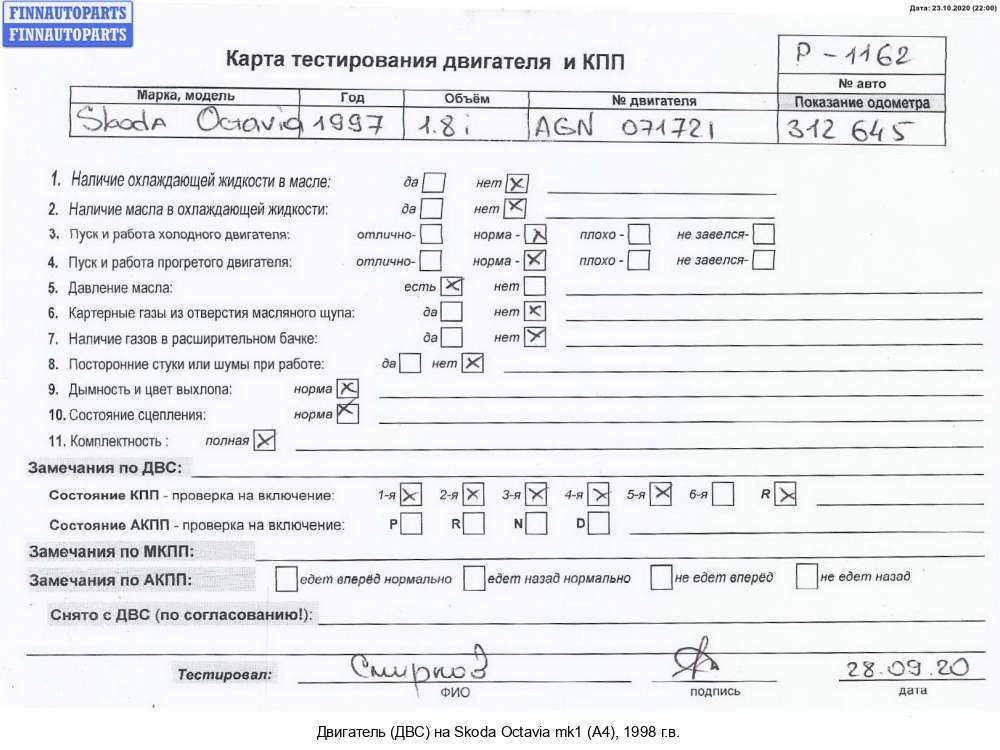 FINNAUTOPARTS
FINNAUTOPARTS
Дата: 23.10.2020 (22:00)
Карта тестирования двигателя и КПП
P - 1162
№ авто
Марка, модель Год Объём № двигателя Показание одометра
Skoda Octavia 1997 1.8i AGN 071721 312 645
1. Наличие охлаждающей жидкости в масле: да нет
2. Наличие масла в охлаждающей жидкости: да нет
3. Пуск и работа холодного двигателя: отлично- норма - плохо - не завелся-
4. Пуск и работа прогретого двигателя: отлично- норма - плохо - не завелся-
5. Давление масла: есть нет
6. Картерные газы из отверстия масляного щупа: да нет
7. Наличие газов в расширительном бачке: да нет
8. Посторонние стуки или шумы при работе: да нет
9. Дымность и цвет выхлопа: норма
10. Состояние сцепления: норма
11. Комплектность : полная
Замечания по ДВС:
Состояние КПП - проверка на включение: 1-я 2-я 3-я 4-я 5-я 6-я R
Состояние АКПП - проверка на включение: P R N D
Замечания по МКПП:
Замечания по АКПП: едет вперёд нормально едет назад нормально не едет вперёд не едет назад
Снято с ДВС (по согласованию!):
Тестировал: Смирнов 28.09.20
ФИО подпись дата
Двигатель (ДВС) на Skoda Octavia mk1 (A4), 1998 г.в.